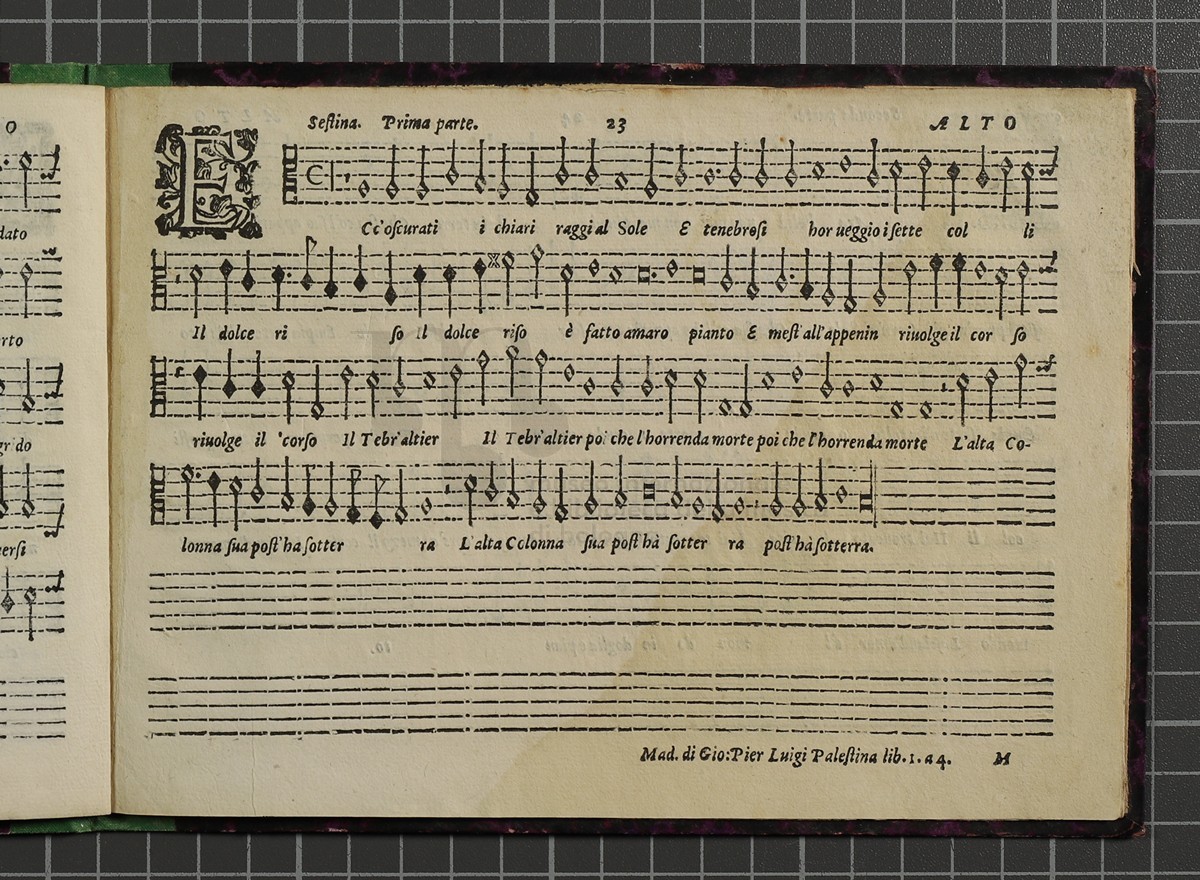 O
dato
rto
gri do
versi
Sestina. Prima parte. 23 ALTO
E Cc'oscurati i chiari raggi al Sole E tenebrosi hor ueggio i sette col li
Il dolce ri so Il dolce riso è fatto amaro pianto E mest'all'appenin riuolge il cor so
riuolge il corso Il Tebr'altier Il Tebr'altier poi che l'horrenda morte poi che l'horrenda morte L'alta Co-
lonna sua post'ha sotter ra L'alta Colonna sua post'hà sotter ra post'hà sotterra.
Mad. di Gio: Pier Luigi Palestina lib. 1. a 4. M